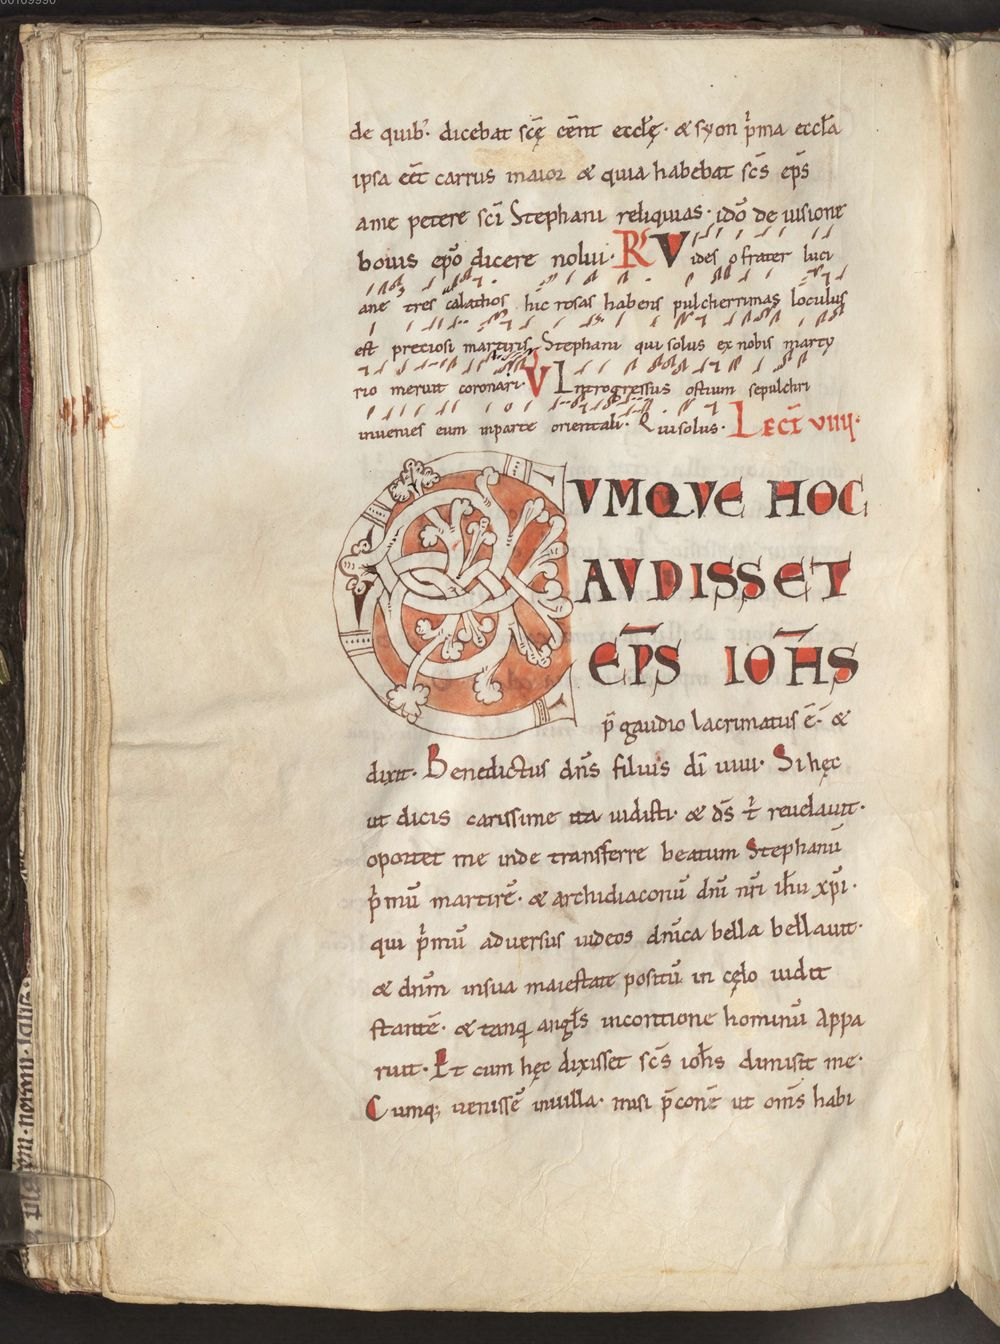 00109990
de quib᷒· dicebat scę cēnt eccłę· & syon p̓ma eccła
ipsa eēt carrus maior & quia habebat scs̄ ep̄s
a me petere sc̄i Stephani reliquias· idō de uisione
bouis ep̄o dicere nolui· R̸ Vides o frater luci
ane tres calathos hic rosas habens pulcherrimas loculus
est preciosi martiris Stephani qui solus ex nobis marty
rio meruit coronari· V Introgressus ostium sepulchri
inuenies eum in parte orientali· Qui solus· Lect̄ VIIII·
CVMQVE HOC
AVDISSET
EP̄S IOH̄S
p̄ gaudio lacrimatus ē· &
dixit· Benedictus dn̄s filius dī uiui· Si hęc
ut dicis carissime ita uidisti· & ds̄ t̓ reuelauit·
oportet me inde transferre beatum Stephanū
p̓mū martirē· & archidiaconū dn̄i nr̄i ih̄u xp̄i·
qui p̓mū aduersus iudeos dn̄ica bella bellauit·
& dnm̄ in sua maiestate positū in cęlo uidit
stantē· & tanq̄ angl̄s in contione hominū appa
ruit· Et cum hęc dixisset scs̄ ioh̄s dimisit me·
Cumq; uenissē in uilla· misi p̄conē ut om̄s habi